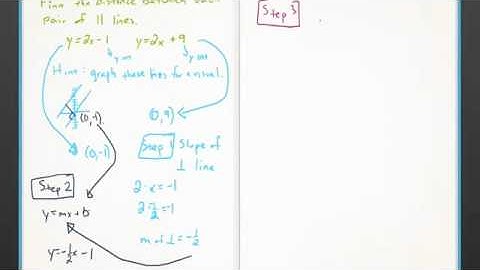 Find the distance between each
pair of || lines.
y=2x-1 y=2x+9
y int y int
Hint: graph these lines for a visual.
(0,-1) (0,9)
(0,-1)
Step 1 Slope of
⊥ line
2·x=-1
2·-1/2=-1
m of ⊥ = -1/2
Step 2
y=mx+b
y=-1/2x-1
Step 3